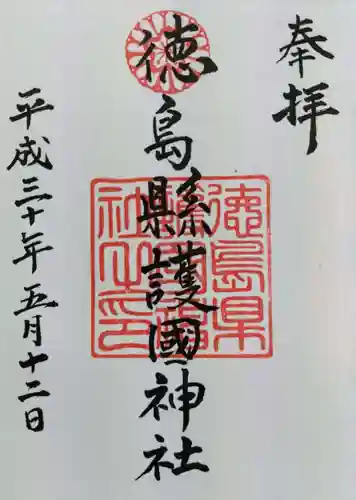 奉拝
徳島縣護國神社
徳島県
護國神
社之印
平成三十年五月十二日